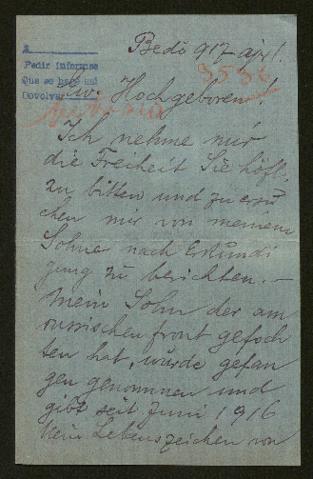 Bedö 917 apr 1.
Pedir informes
Que se hace así
Devolver
3536
Ew. Hochgeboren!
Ich nehme mir
die Freiheit Sie höfl.
zu bitten und zu ersu
chen mir von meinem
Sohne nach Erkundi
gung zu berichten. –
Mein Sohn der am
russischen front gefoch
ten hat, wurde gefan
gen genommen und
gibt seit Juni 1916
kein Lebenszeichen von